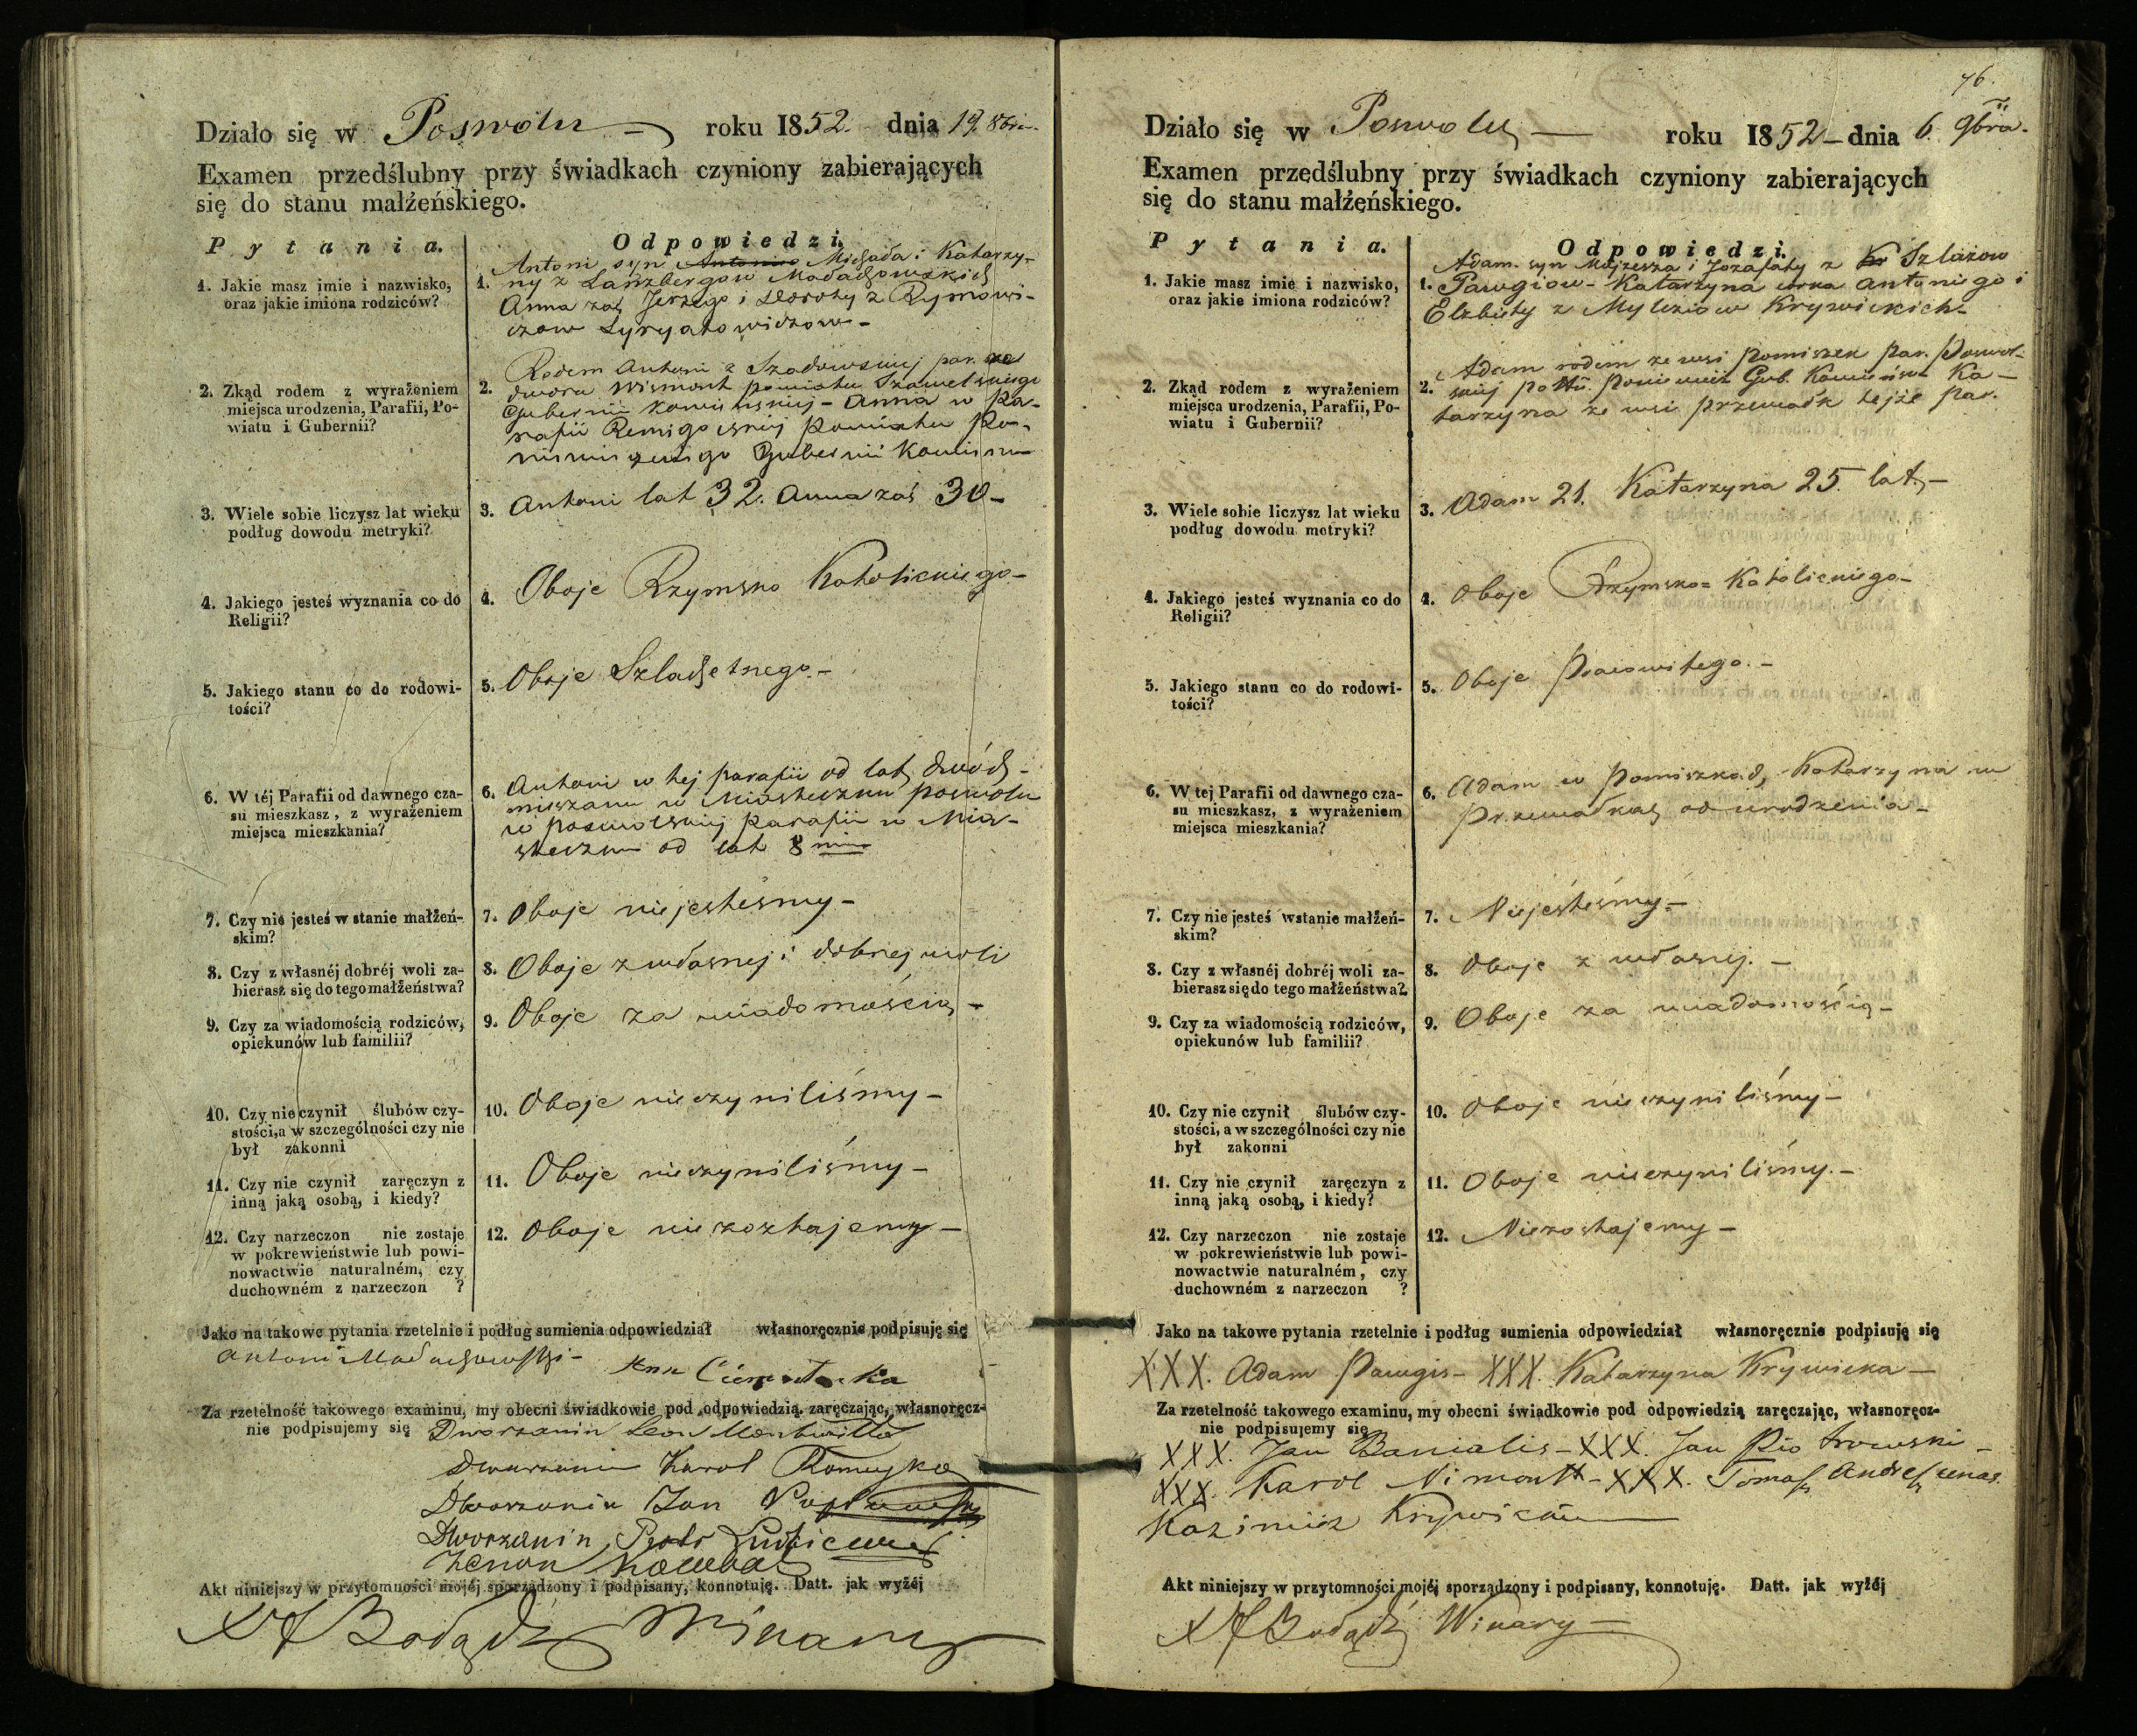 Działo się w Poswolu — roku 1852. dnia 19. 8bra.
Examen przedślubny przy świadkach czyniony zabierających
się do stanu małżeńskiego.
Pytania. Odpowiedzi.
1. Jakie masz imie i nazwisko,
oraz jakie imiona rodziców?
1. Antoni syn Michała i Katarzy-
ny z
Anna zaś Jerzego i Doroty z Rymowi-
czow
2. Zkąd rodem z wyrażeniem
miejsca urodzenia, Parafii, Po-
wiatu i Gubernii?
2. Rodem Antoni z Szadowskiej par. ze
dworu Wismont powiatu Szawelskiego
Gubernii Kowieńskiej - Anna w Pa-
rafii Remigolskiej Powiatu Po-
niewieżskiego Gubernii
3. Wiele sobie liczysz lat wieku
podług dowodu metryki?
3. Antoni lat 32. Anna zaś 30 -
4. Jakiego jesteś wyznania co do
Religii?
4. Oboje Rzymsko Katolickiego -
5. Jakiego stanu co do rodowi-
tości?
5. Oboje Szlachetnego. -
6. W téj Parafii od dawnego cza-
su mieszkasz, z wyrażeniem
miejsca mieszkania?
6. Antoni w tej parafii od lat dwóch -
w Miasteczku Poswolu
w Poswolskiej parafii w Mia-
steczku od lat 8
7. Czy nie jesteś w stanie małżeń-
skim?
7. Oboje niejesteśmy -
8. Czy z własnéj dobréj woli za-
bierasz się do tego małżeństwa?
8. Oboje z własnej i dobrej woli
9. Czy za wiadomością rodziców,
opiekunów lub familii?
9. Oboje za wiadomością -
10. Czy nie czynił ślubów czy-
stości, a w szczególności czy nie
był zakonni
10. Oboje nieczyniliśmy -
11. Czy nie czynił zaręczyn z
inną jaką osobą, i kiedy?
11. Oboje nieczyniliśmy -
12. Czy narzeczon nie zostaje
w pokrewieństwie lub powi-
nowactwie naturalném, czy
duchowném z narzeczon ?
12. Oboje niezostajemy -
Jako na takowe pytania rzetelnie i podług sumienia odpowiedział własnoręcznie podpisuję się
Antoni
Za rzetelność takowego examinu, my obecni świadkowie pod odpowiedzią zaręczając, własnoręcz-
nie podpisujemy się Dworzanin Leon Montwiłło
Dworzanin Karol
Dworzanin Jan
Dworzanin Piotr
Zenon
Akt niniejszy w przytomności mojéj sporządzony i podpisany, konnotuję. Datt. jak wyżéj
76.
Działo się w Poswolu — roku 1852 — dnia 6. 9bra.
Examen przedślubny przy świadkach czyniony zabierających
się do stanu małżeńskiego.
Pytania. Odpowiedzi.
1. Jakie masz imie i nazwisko,
oraz jakie imiona rodziców?
1. Adam syn Mojżesza i Jozafaty z Szlażow
Pawgiow - Katarzyna córka Antoniego i
Elżbiety z Krywickich -
2. Zkąd rodem z wyrażeniem
miejsca urodzenia, Parafii, Po-
wiatu i Gubernii?
2. Adam rodem ze wsi Pamiszek Par. Poswol-
skiej Gub. Ka-
tarzyna ze wsi tejże Par.
3. Wiele sobie liczysz lat wieku
podług dowodu metryki?
3. Adam 21. Katarzyna 25. lat, -
4. Jakiego jesteś wyznania co do
Religii?
4. Oboje Rzymsko = Katolickiego -
5. Jakiego stanu co do rodowi-
tości?
5. Oboje Pracowitego. -
6. W téj Parafii od dawnego cza-
su mieszkasz, z wyrażeniem
miejsca mieszkania?
6. Adam w Pamiszkach, Katarzyna w
od urodzenia -
7. Czy nie jesteś wstanie małżeń-
skim?
7. Niejesteśmy -
8. Czy z własnéj dobréj woli za-
bierasz się do tego małżeństwa?
8. Oboje z własnej. -
9. Czy za wiadomością rodziców,
opiekunów lub familii?
9. Oboje za wiadomością -
10. Czy nie czynił ślubów czy-
stości, a w szczególności czy nie
był zakonni
10. Oboje nieczyniliśmy -
11. Czy nie czynił zaręczyn z
inną jaką osobą, i kiedy?
11. Oboje nieczyniliśmy. -
12. Czy narzeczon nie zostaje
w pokrewieństwie lub powi-
nowactwie naturalném, czy
duchowném z narzeczon ?
12. Niezostajemy -
Jako na takowe pytania rzetelnie i podług sumienia odpowiedział własnoręcznie podpisuję się
XXX. Adam Pawgis - XXX. Katarzyna Krywicka -
Za rzetelność takowego examinu, my obecni świadkowie pod odpowiedzią zaręczając, własnoręcz-
nie podpisujemy się
XXX. Jan Banialis - XXX. Jan Piotrowski -
XXX. Karol Nimontt - XXX. Tomasz
Kazimierz
Akt niniejszy w przytomności mojéj sporządzony i podpisany, konnotuję. Datt. jak wyżéj